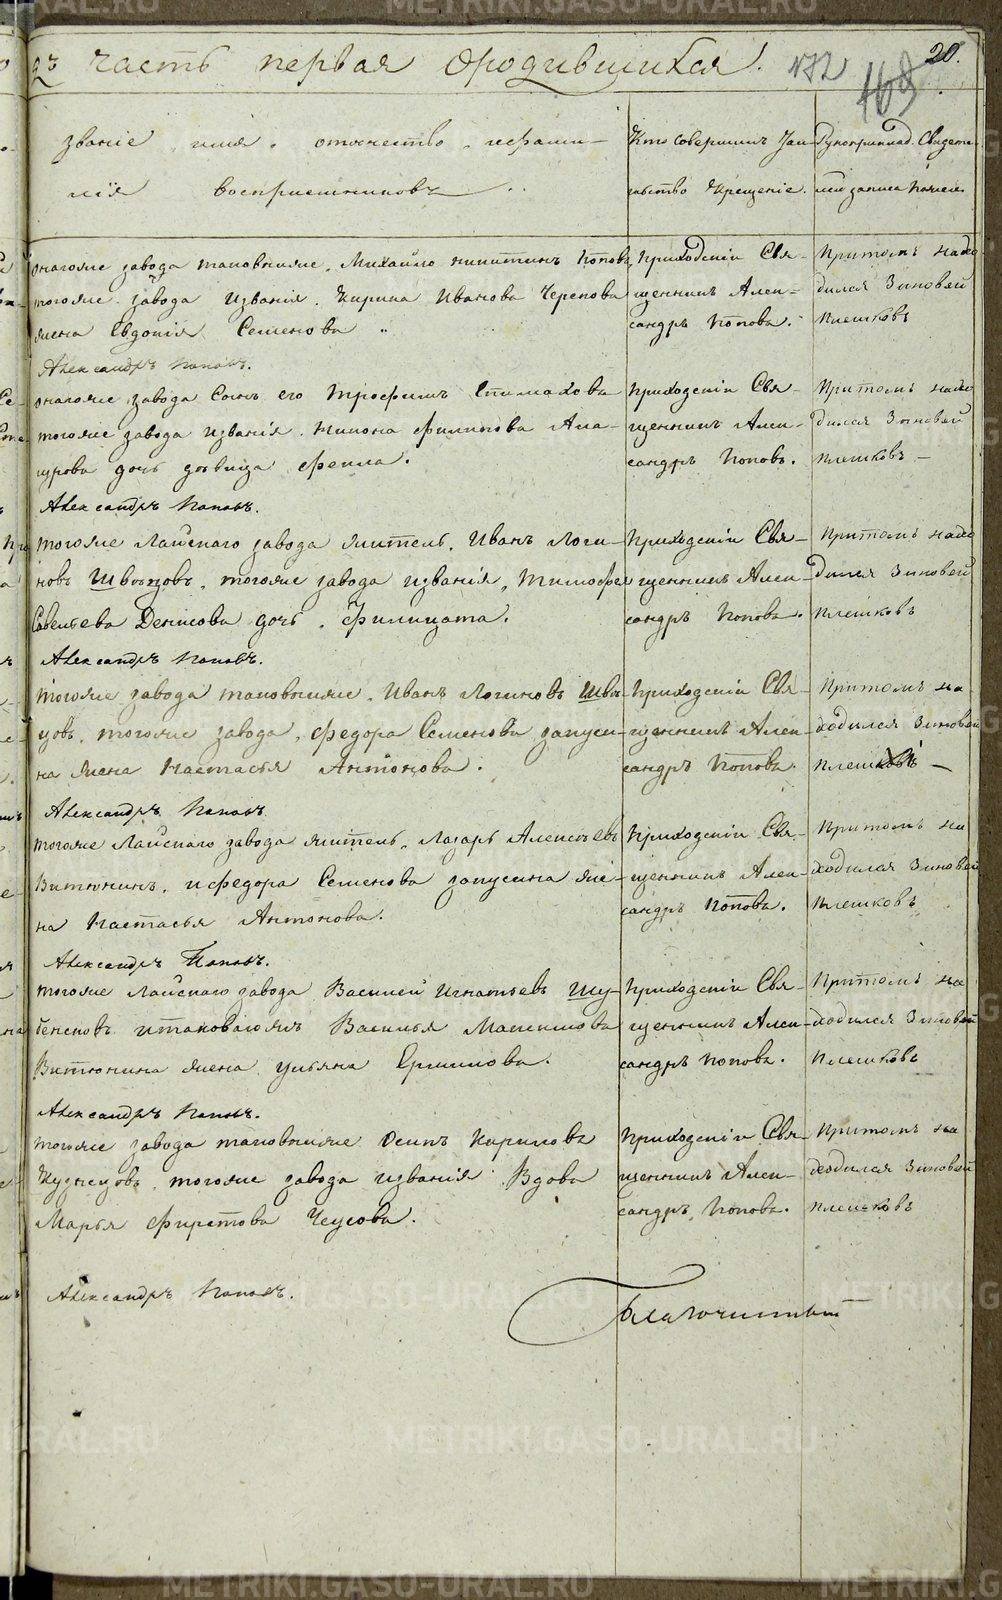 METRIKI.GASO-URAL.RU
часть первая ородившихся. 172 169 20.
званіе имя, отчество, ифами-
лія воспріемниковъ
Кто совершилъ Таи-
ньство Крещеніе.
Рукоприклад. Свидете-
лей записа
онагоже завода таковыиже, Михайло никитинъ Попов,
тогоже завода изванія, Кирила Иванова Черепова
жена Евдокія Семенова
Александръ Поповъ.
Приходскіи Свя-
щенникъ Алек-
сандръ Попова.
Притомъ нахо
дился Зиновей
Плешковъ
онагоже завода Сынъ его Трофимъ
тогоже завода изванія, филипова Ала-
дочь девица фекла.
Александръ Поповъ.
Приходскіи Свя-
щенникъ Алек-
сандръ Поповъ.
Притомъ нахо
дился Зиновей
Плешковъ
тогоже Лайскаго завода житель, Иванъ Логи-
новъ Швецовъ, тогоже завода изванія, Тимофея
Савельева Денисова дочь, Филицата.
Александръ Поповъ.
Приходскіи Свя-
щенникъ Алек-
сандръ Попова.
Притомъ нахо
дился Зиновей
Плешковъ
тогоже завода таковыиже, Иванъ Логиновъ Шве-
цовъ, тогоже завода, федора Семенова запуски-
на жена Настасья Антонова.
Александръ Поповъ
Приходскіи Свя-
щенникъ Алек-
сандръ Попова.
Притомъ на
ходился Зиновей
Плешковъ
тогоже Лайскаго завода житель, Лазарь Алексеевъ
Витюнинъ, ифедора Семенова запускина же-
на Настасья Антонова.
Александръ Поповъ.
Приходскіи Свя-
щенникъ Алек-
сандръ Попова.
Притомъ на
ходился Зиновей
Плешковъ
тогоже Лайскаго завода Василей Игнатьевъ Шу-
итаковагожъ Василья Максимова
Витюнина жена ульяна Ермилова.
Александръ Поповъ.
Приходскіи Свя-
щенникъ Алек-
сандръ Попова.
Притомъ на
ходился Зиновей
Плешковъ
тогоже завода таковыиже Осипъ Кирилова
Кузнецовъ, тогоже завода изванія Вдова
Марья фирстова Чеусова.
Александръ Поповъ.
Приходскіи Свя-
щенникъ Алек-
сандръ, Попова.
Притомъ на
ходился Зиновей
Плешковъ
Благочинный
METRIKI.GASO-URAL.RU
METRIKI.GASO-URAL.RU